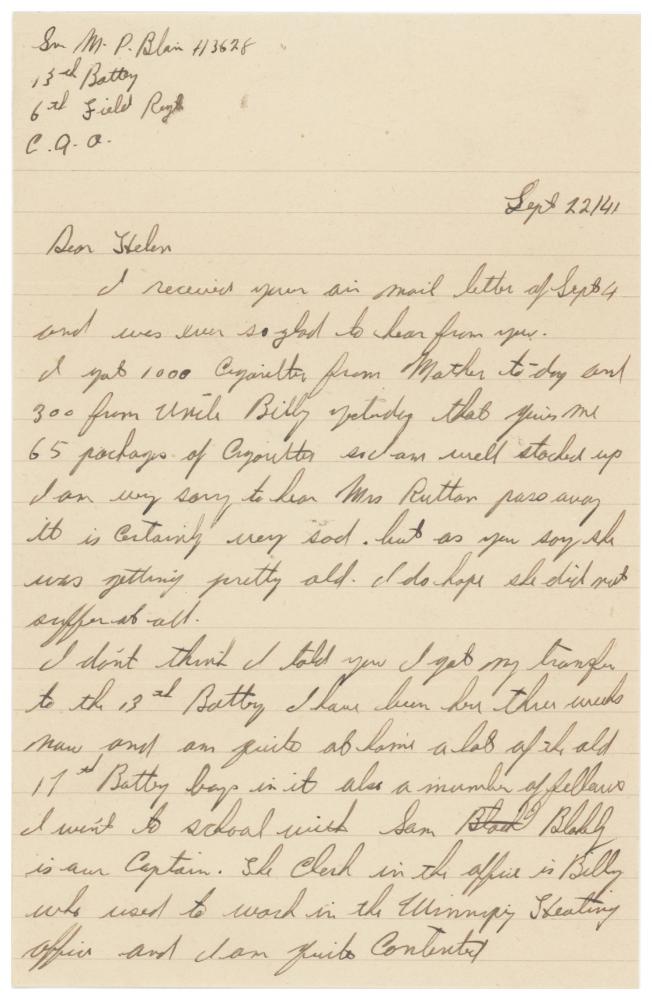 Gnr M. P. Blair H3628
13th Battey
6th Field Regt
C. A. O.
Sept 22/41
Dear Helen
I received your air mail letter of Sept 4
and was ever so glad to hear from you.
I got 1000 Cigarettes from Mother to-day and
300 from Uncle Billy yesterday that gives me
65 packages of Cigarettes so I am well stocked up
I am very sorry to hear Mrs Ruttan pass away
it is certainly very sad. but as you say she
was getting pretty old. I do hope she did not
suffer at all.
I don't think I told you I got my transfer
to the 13th Battey I have been here three weeks
now and am quite at home a lot of the old
17th Battey boys in it also a number of fellows
I went to school with Sam
is our Captain. The Clerk in the office is Billy
who used to work in the Winnipeg Heating
office and I am quite Contented